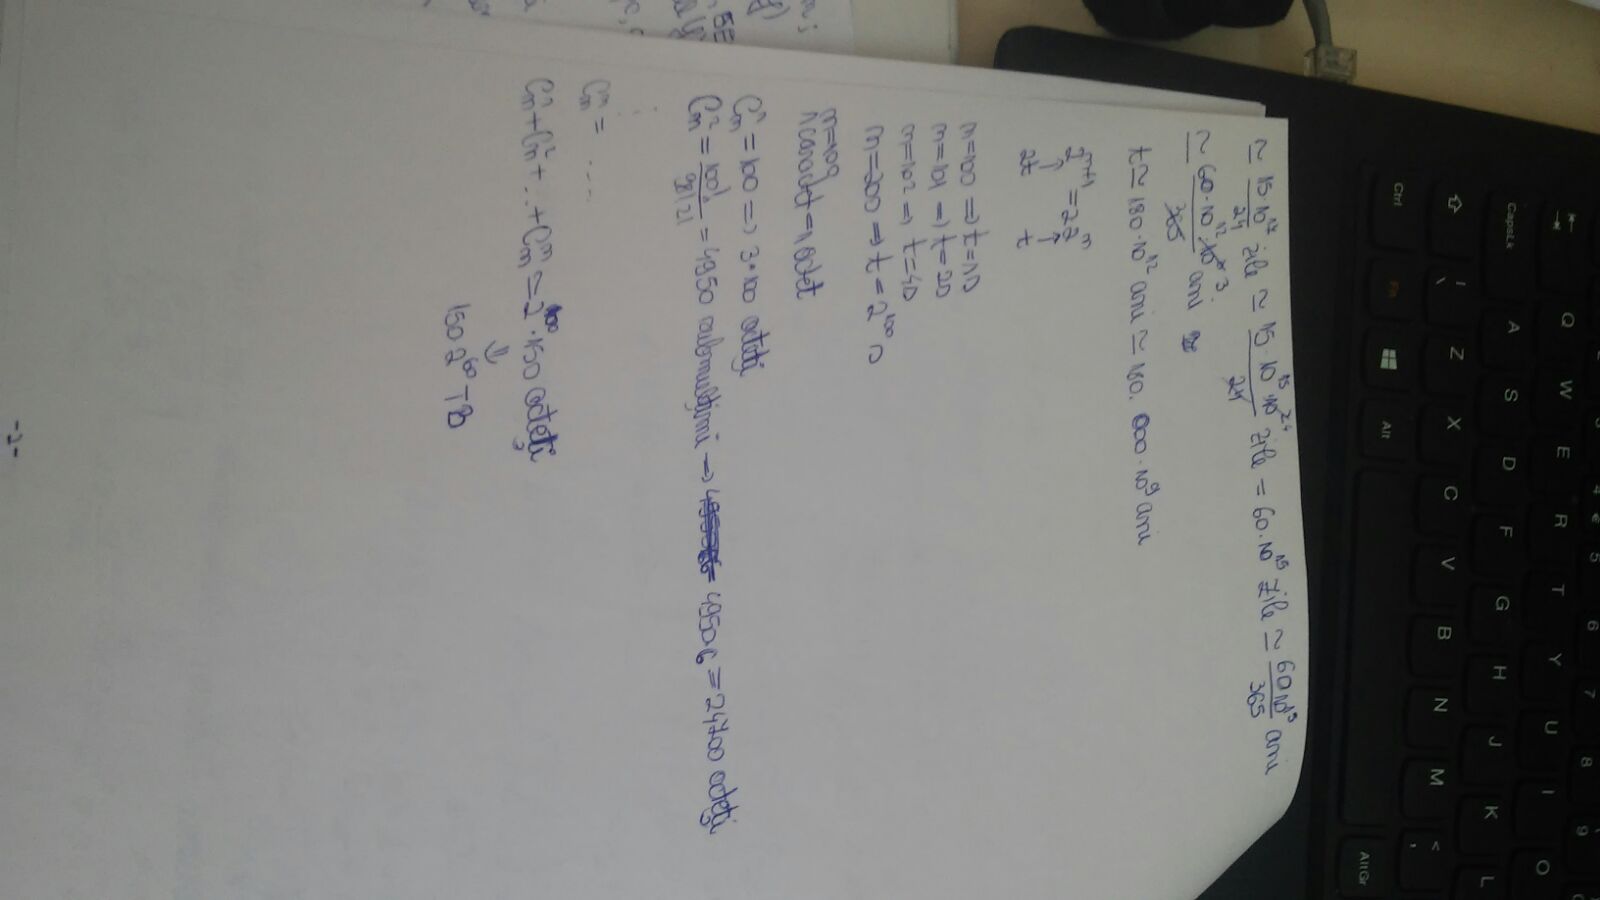 Q W E R T Y U I O
CapsLk A S D F G H J K L
Z X C V B N M <
Ctrl Fn Alt AltGr
≃ 15·10^17/24 zile ≃ 15·10^15·10^2 4/24 zile = 60·10^15 zile ≃ 60·10^15/365 ani
≃ 60·10^12·10^3 3/365 ani ≃
t ≃ 180·10^12 ani ≃ 180.000·10^9 ani
2^n+1 = 2·2^n
↑ ↑
2t t
n=100 => t=1s
n=101 => t=2s
n=102 => t=4s
n=200 => t=2^100 s
n=100
1 caracter = 1 octet
C_n^1 = 100 => 3·100 octeți
C_n^2 = 100!/98!2! = 4950 submulțimi => 4950·6 = 24700 octeți
⋮
C_n^n = ....
C_n^1+C_n^2+..+C_n^n ≃ 2^100·150 octeți
⇓
150·2^60 TB
-2-